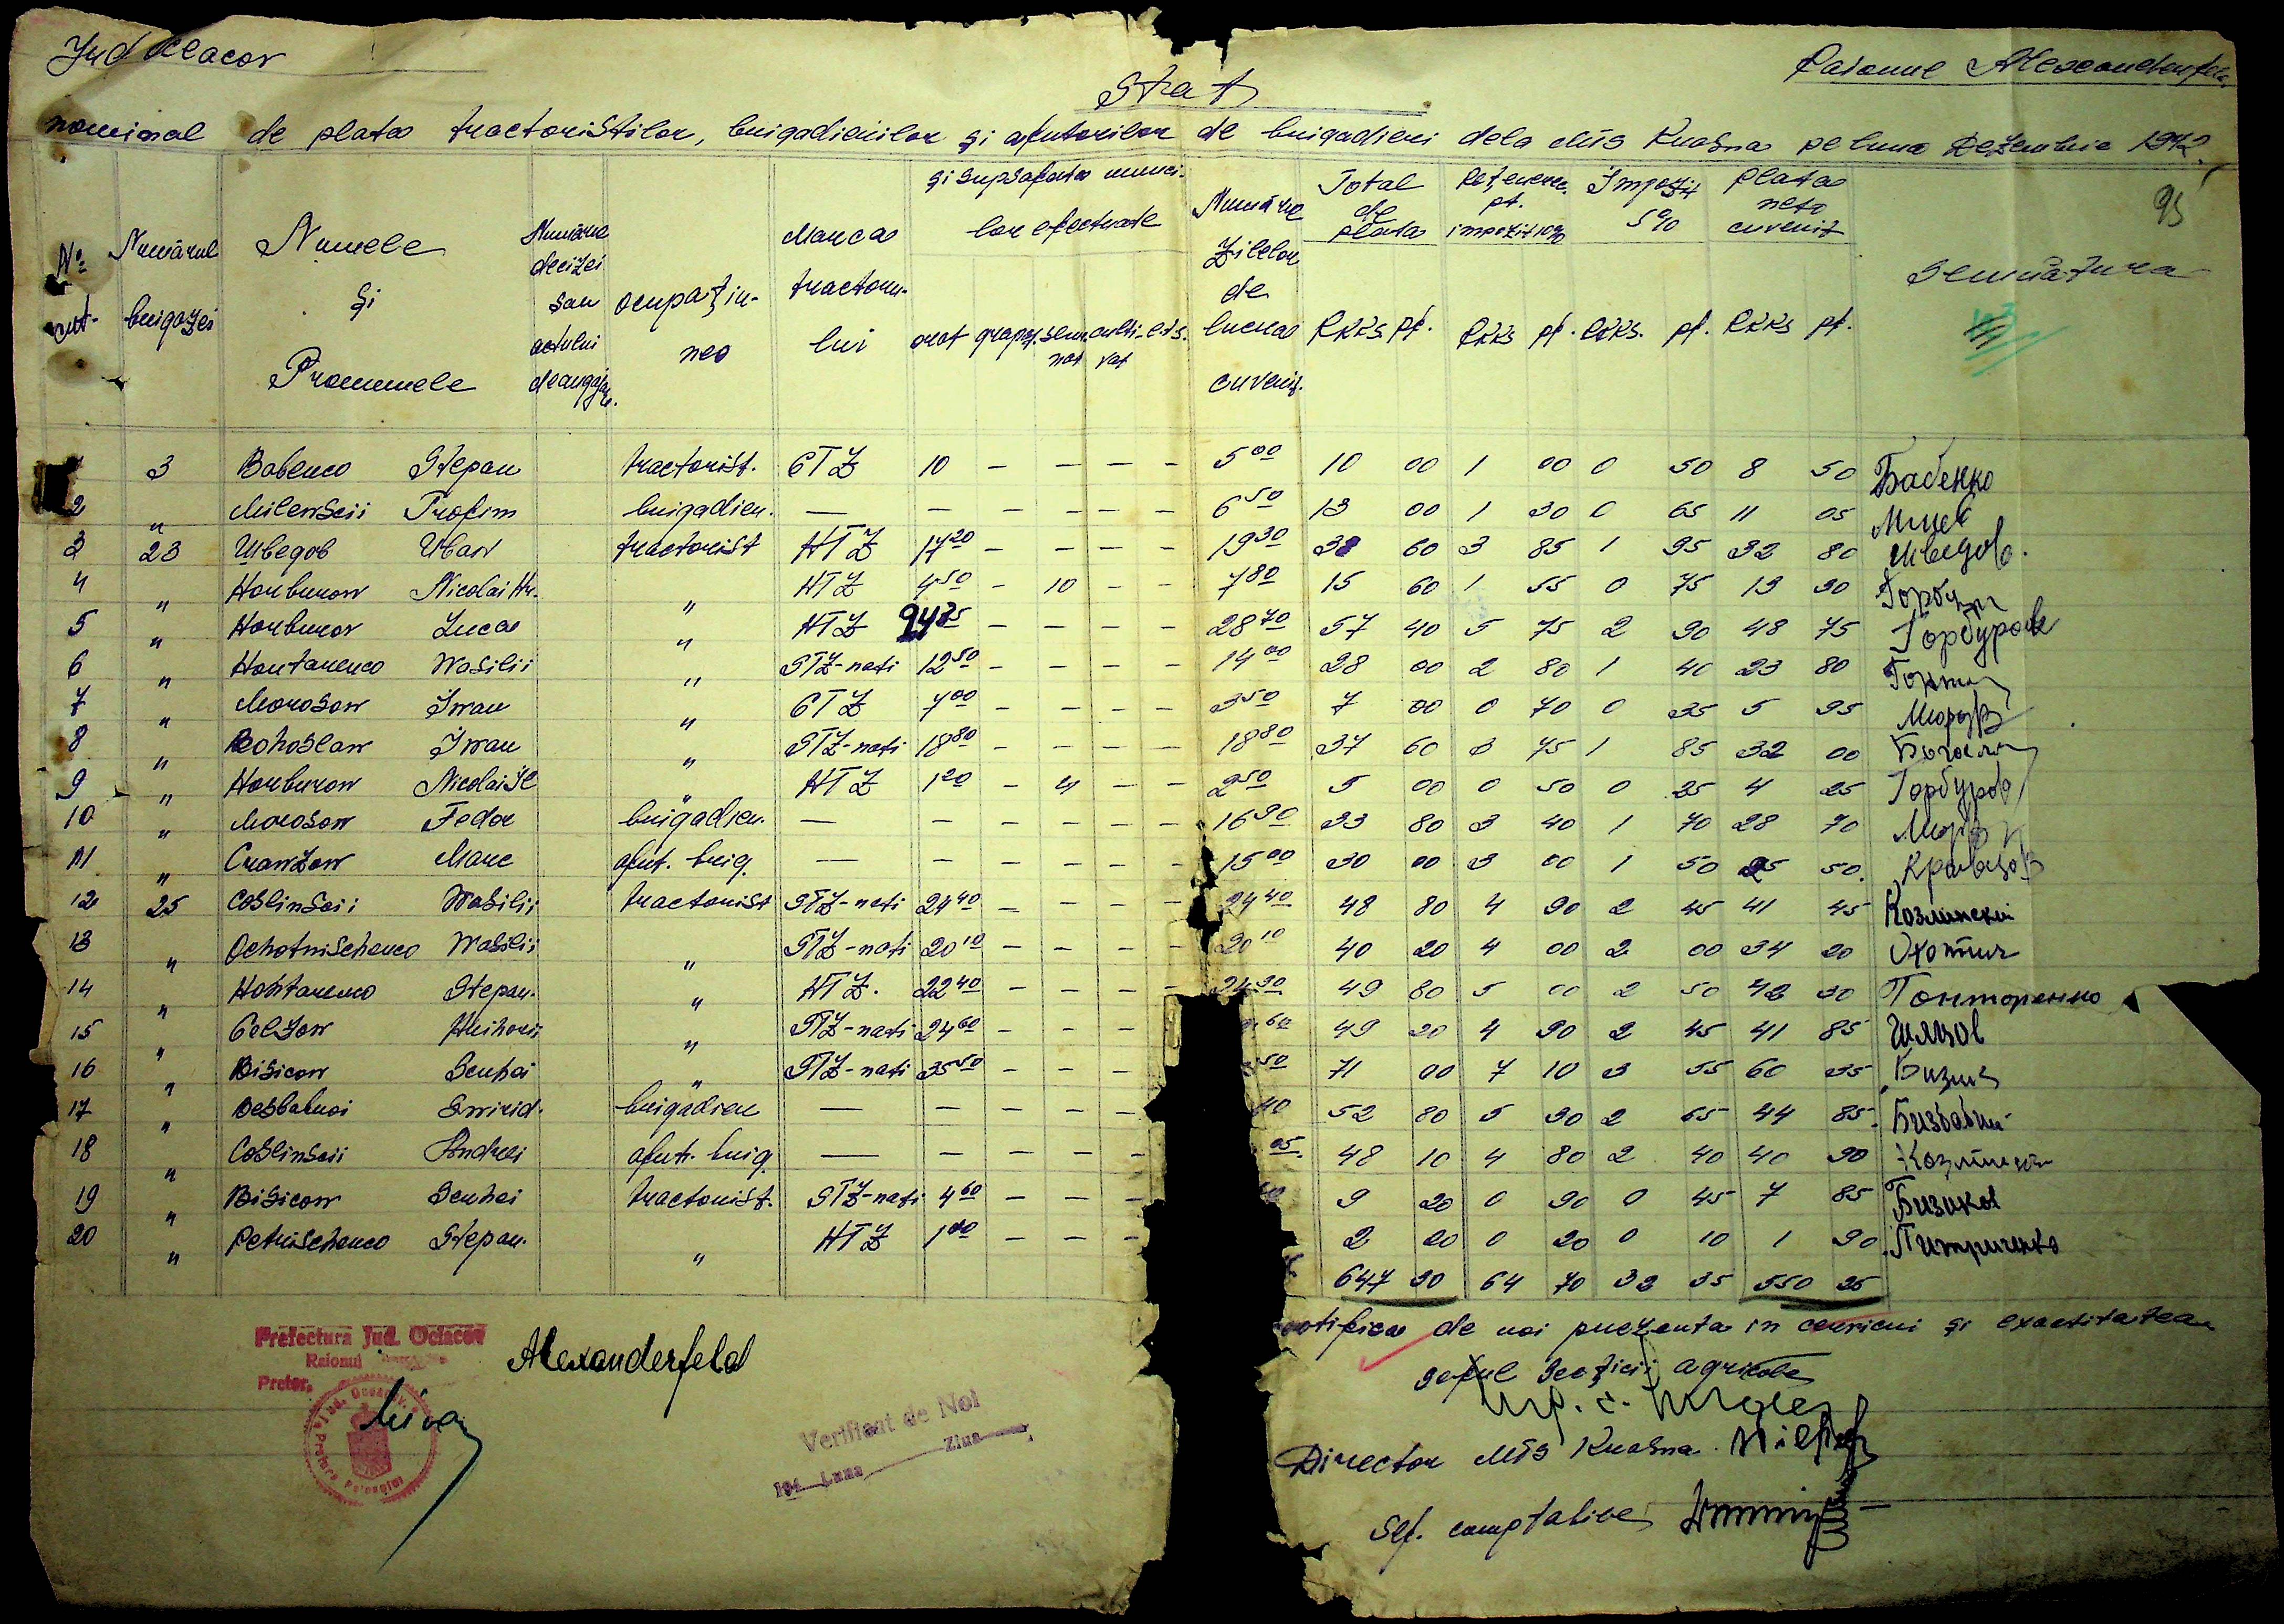 Jud Oceacov
Raionul Alexanderfeld
Stat
nominal de plata tractoristilor, brigadierilor și ajutorilor de brigadieri dela MTS Krasna pe luna Dezembrie 1942
95
№ crt.
Numărul brigazei
Numele și Pronumele
Numărul decizei sau actului de angajare.
ocupațiunea
Marca tractorului
și supsafata muncilor efectuate
arat grapat. semănat cultivat etc.
Numărul zilelor de lucru cuvenit.
Total de plata RKKS pf.
Reținere pt. impozit 10% RKKS pf.
Impozit 5% RKKS. pf.
Plata neto cuvenit RKKS pf.
Semnătura
1 3 Babenco Stepan tractorist. CTZ 10 — — — — 5 00 10 00 1 00 0 50 8 50 Бабенко
2 " Milewscii Trofim brigadier. — — — — — — 6 50 13 00 1 30 0 65 11 05
3 23 Шведов Иван tractorist HTZ 17 20 — — — — 19 30 38 60 3 85 1 95 32 80 Шведов.
4 " Horburow Nicolai Hr. " HTZ 4 50 — 10 — — 7 80 15 60 1 55 0 75 13 30
5 " Horburow Luca " HTZ 24 35 — — — — 28 70 57 40 5 75 2 90 48 75 Горбуров
6 " Hontarenco Wasilii " STZ-nati 12 50 — — — — 14 00 28 00 2 80 1 40 23 80
7 " Morosow Iwan " CTZ 7 00 — — — — 3 50 7 00 0 70 0 35 5 95
8 " Bohoslaw Iwan " STZ-nati 18 80 — — — — 18 80 37 60 3 75 1 85 32 00
9 " Horburow Nicolai Il " HTZ 1 20 — 4 — — 2 50 5 00 0 50 0 25 4 25 Горбуров
10 " Morosow Fedor brigadier. — — — — — — 16 90 33 80 3 40 1 70 28 70
11 " Crawzow Marc ajut. brig. — — — — — — 15 00 30 00 3 00 1 50 25 50 Кравцов
12 25 Coslinscii Wasilii tractorist STZ-nati 24 40 — — — — 24 40 48 80 4 90 2 45 41 45 Козлинский
13 " Ochotnischenco Wasilii " STZ-nati 20 10 — — — — 20 10 40 20 4 00 2 00 34 20 Охотни
14 " Hontarenco Stepan. " HTZ. 22 40 — — — — 24 90 49 80 5 00 2 50 42 30 Гонторенко
15 " Celzow Hrihorii " STZ-nati 24 60 — — — 60 49 20 4 90 2 45 41 85
16 " Bisicow Serhei " STZ-nati 35 50 — — — 50 71 00 7 10 3 55 60 35
17 " Besbabnoi Swirid. brigadier — — — — — 40 52 80 5 30 2 65 44 85
18 " Coslinscii Andrei ajut. brig. — — — — — 05 48 10 4 80 2 40 40 90
19 " Bisicow Serhei tractorist. STZ-nati 4 60 — — — 9 20 0 90 0 45 7 85 Бизиков
20 " Petrischenco Stepan. " HTZ 1 00 — — — 2 20 0 20 0 10 1 90
647 90 64 70 32 35 550 25
Prefectura Jud. Oceacov
Raionul
Pretor,
Alexanderfeld
Verificat de Noi
194 Luna Ziua
de noi prezenta in cerricui și exactitatea
Seful Secției agricole
Director MTS Krasna
Sef. comptabive